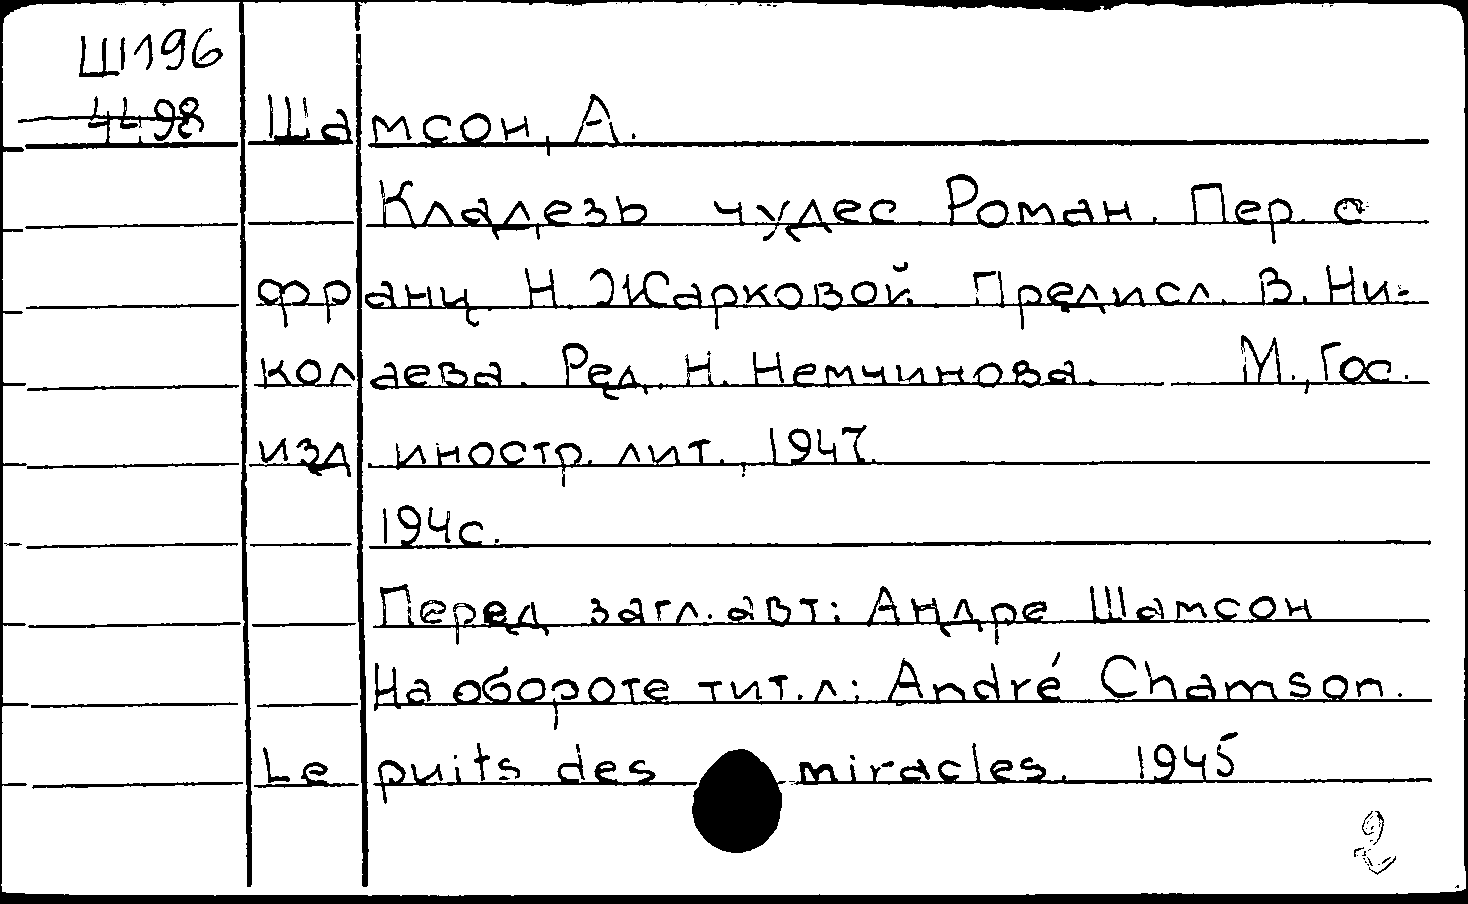 Ш196
4498
Шамсон, А.
Кладезь чудес. Роман. Пер. с
франц. Н. Жарковой. Предисл. В. Ни-
колаева. Ред. Н. Немчинова. М., Гос.
изд. иностр. лит., 1947.
194с.
Перед загл. авт: Андре Шамсон
На обороте тит.л: André Chamson.
Le puits des miracles. 1945
2